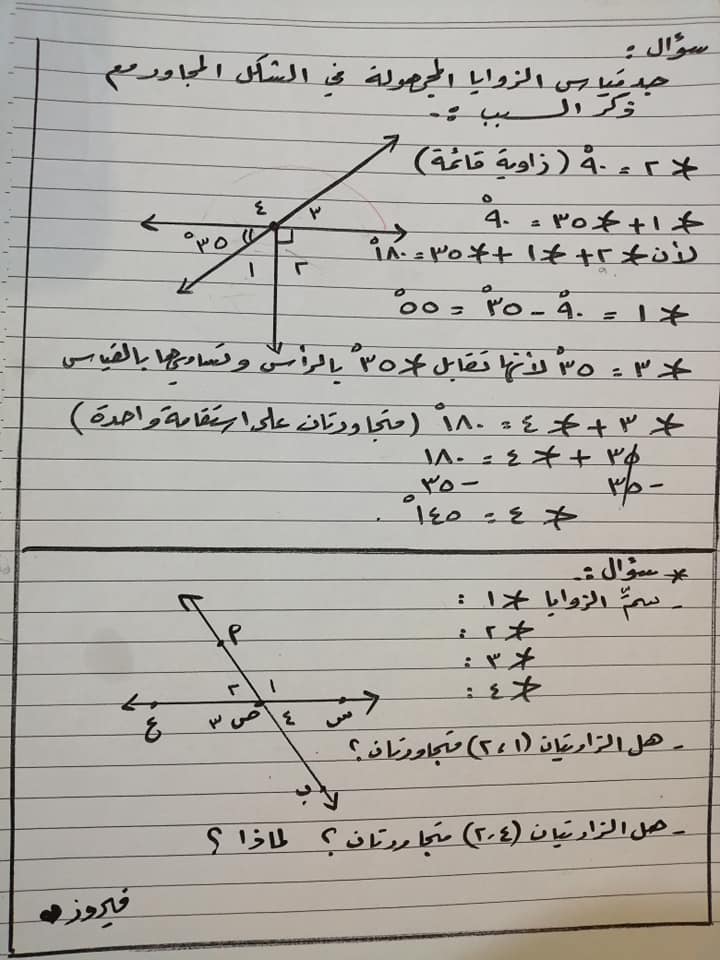 سؤال :
جد قياس الزوايا المجهولة في الشكل المجاور مع
ذكر السبب :-
∢٢ = ٩٠° (زاوية قائمة)
∢١ + ∢٣٥ = ٩٠°
لأن ∢٢ + ∢١ + ∢٣٥ = ١٨٠°
∢١ = ٩٠° - ٣٥° = ٥٥°
٤
٣
٣٥°
١
٢
∢٣ = ٣٥° لأنها تقابل ∢٣٥° بالرأس وتساويها بالقياس
∢٣ + ∢٤ = ١٨٠° (متجاورتان على استقامة واحدة)
٣٥ + ∢٤ = ١٨٠
-٣٥ -٣٥
∢٤ = ١٤٥°
* سؤال :-
- سمِّ الزوايا ∢١ :
∢٢ :
∢٣ :
∢٤ :
م
٢ ١
ع ٣ ص ٤ س
ب
- هل الزاويتان (٢،١) متجاورتان ؟
- هل الزاويتان (٢،٤) متجاورتان ؟ لماذا ؟
فيروز